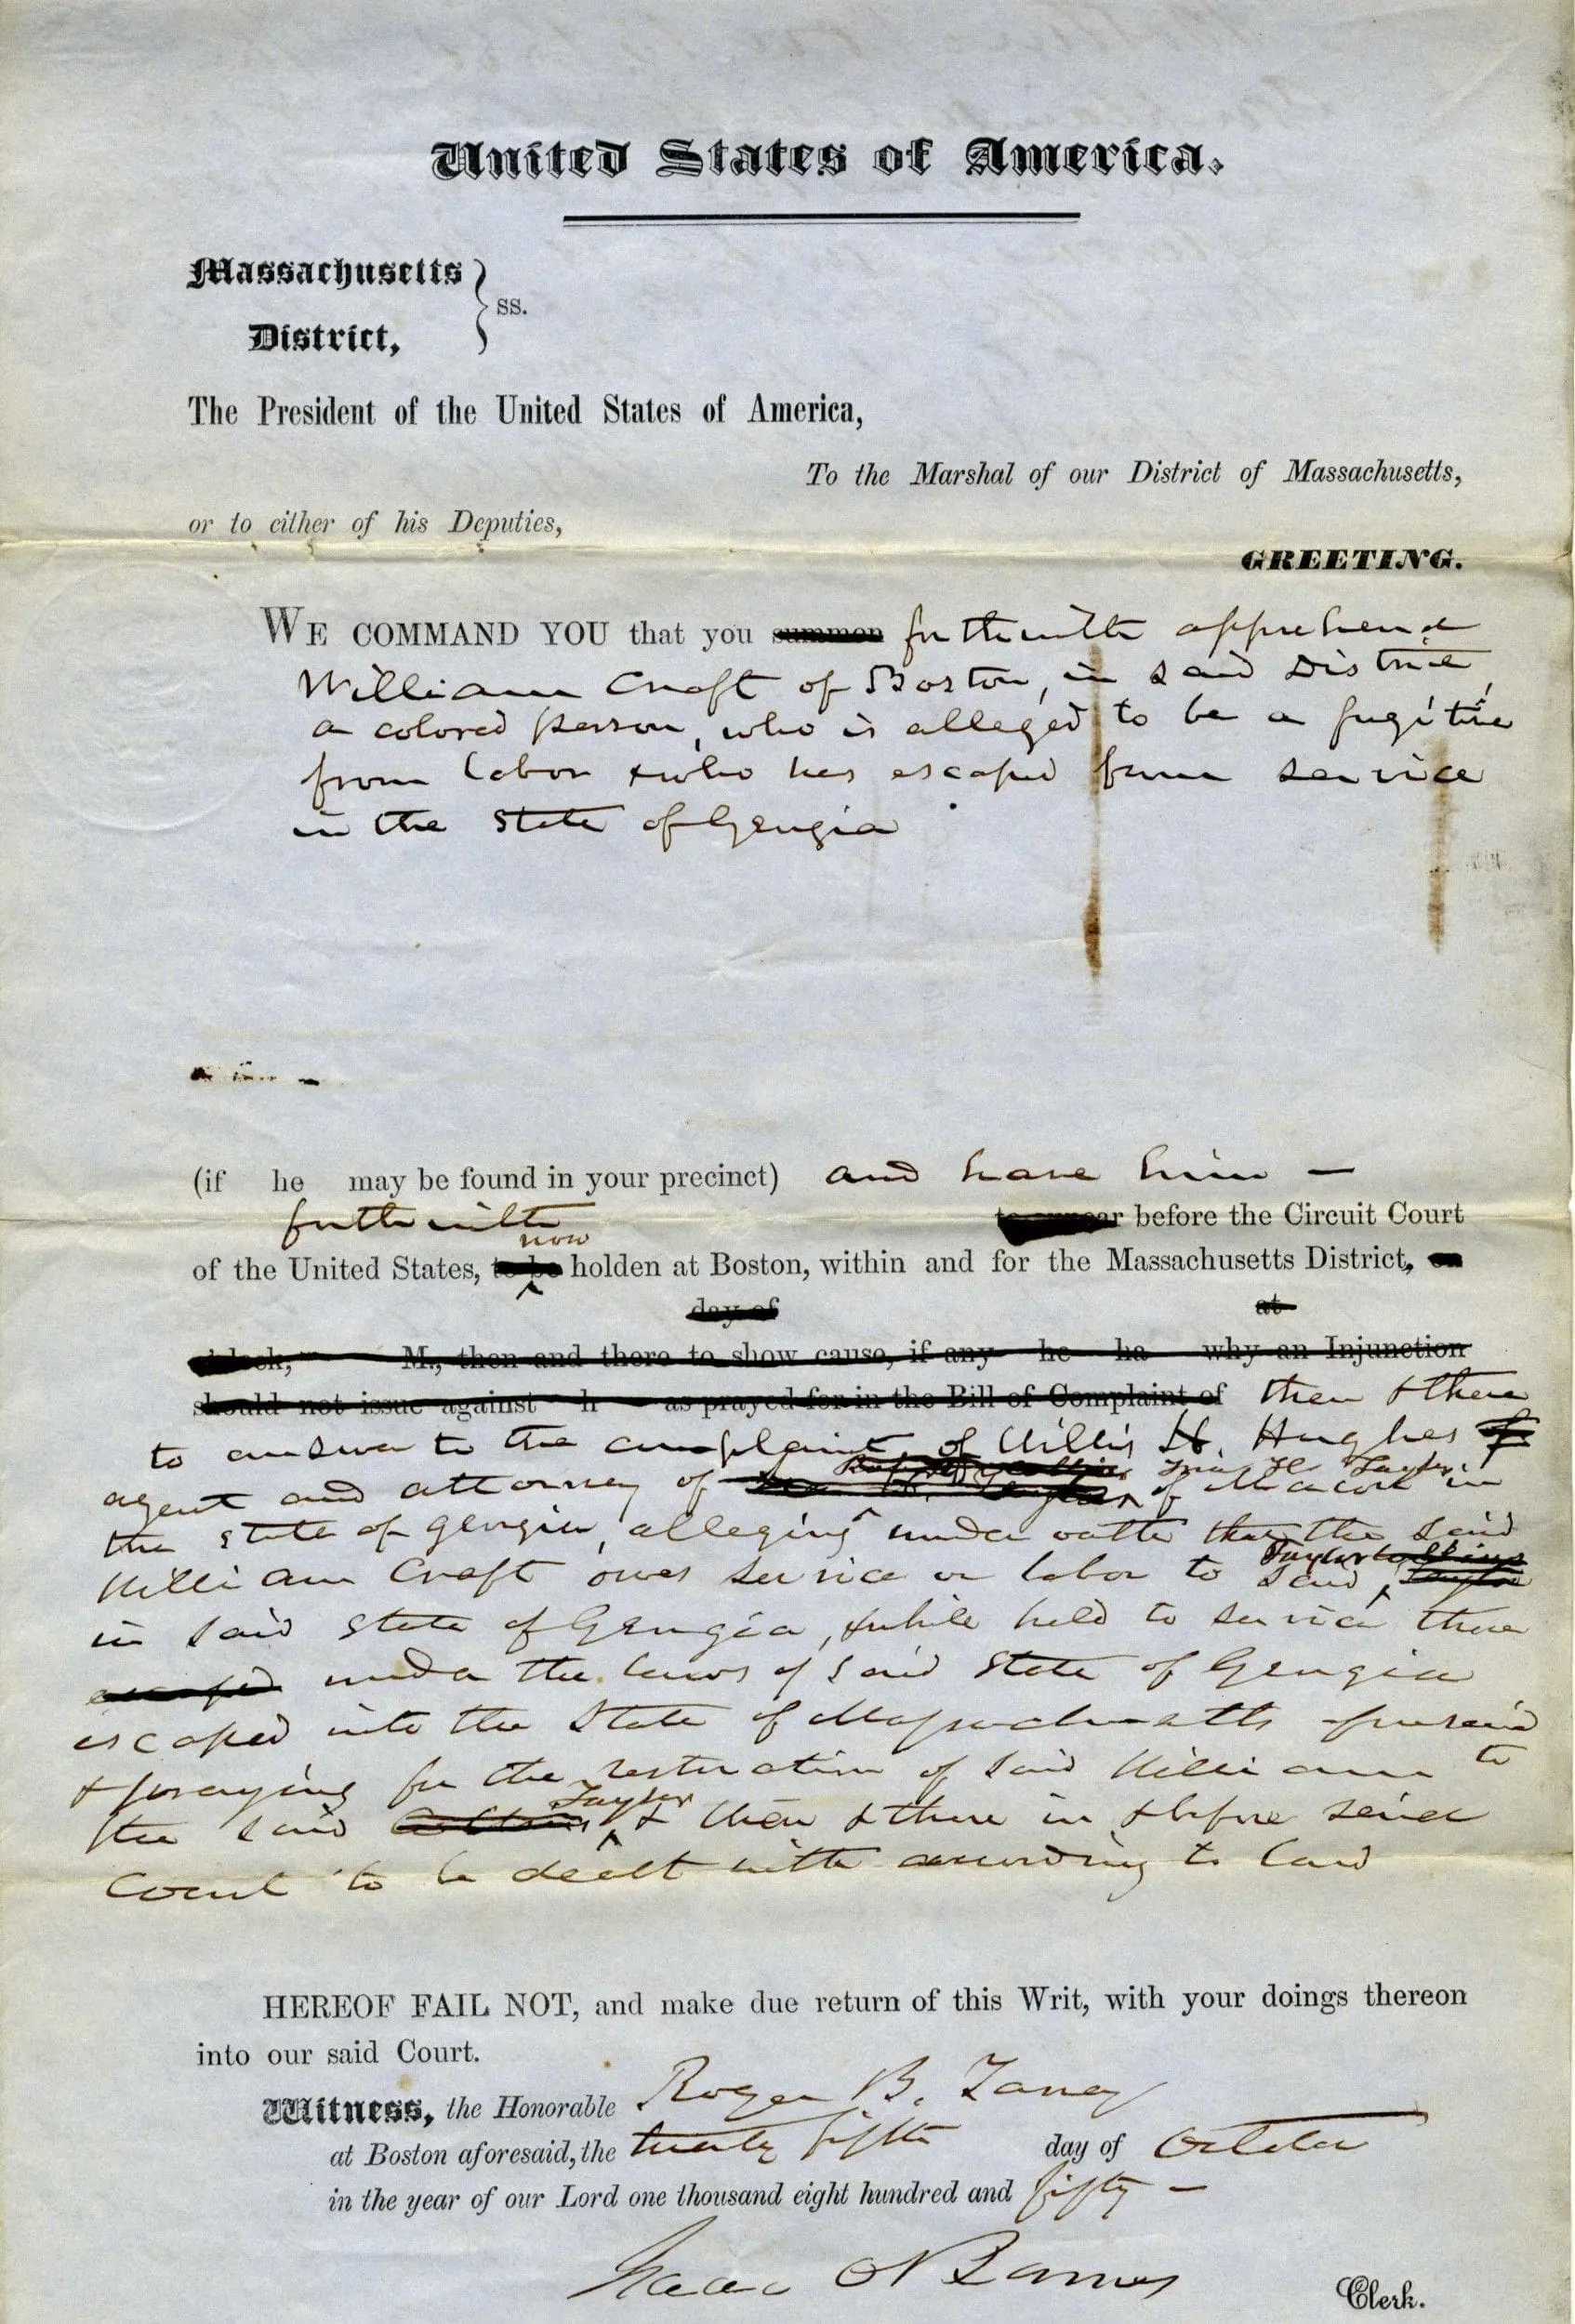 United States of America.
Massachusetts
District,
} ss.
The President of the United States of America,
To the Marshal of our District of Massachusetts,
or to either of his Deputies,
GREETING.
WE COMMAND YOU that you summon forthwith apprehend
William Craft of Boston, in said District,
a colored person, who is alleged to be a fugitive
from labor & who has escaped from service
in the State of Georgia
(if he may be found in your precinct) and have him —
forthwith to appear before the Circuit Court
now
of the United States, to be holden at Boston, within and for the Massachusetts District, on
day of at
o'clock, M., then and there to show cause, if any he ha why an Injunction
should not issue against h as prayed for in the Bill of Complaint of then & there
to answer to the complaint of Willis H. Hughes of
Robt Collins Ira H. Taylor
agent and attorney of of Macon in
the State of Georgia, alleging under oath that the said
Taylor Collins
William Craft owes service or labor to said Taylor
in said State of Georgia, & while held to service there
escaped under the laws of said State of Georgia
escaped into the State of Massachusetts aforesaid
& praying for the restoration of said William to
Taylor
the said Collins & then & there in & before said
Court to be dealt with according to law
HEREOF FAIL NOT, and make due return of this Writ, with your doings thereon
into our said Court.
Witness, the Honorable Roger B. Taney
at Boston aforesaid, the twenty fifth day of October
in the year of our Lord one thousand eight hundred and fifty —
Isaac O Barnes
Clerk.